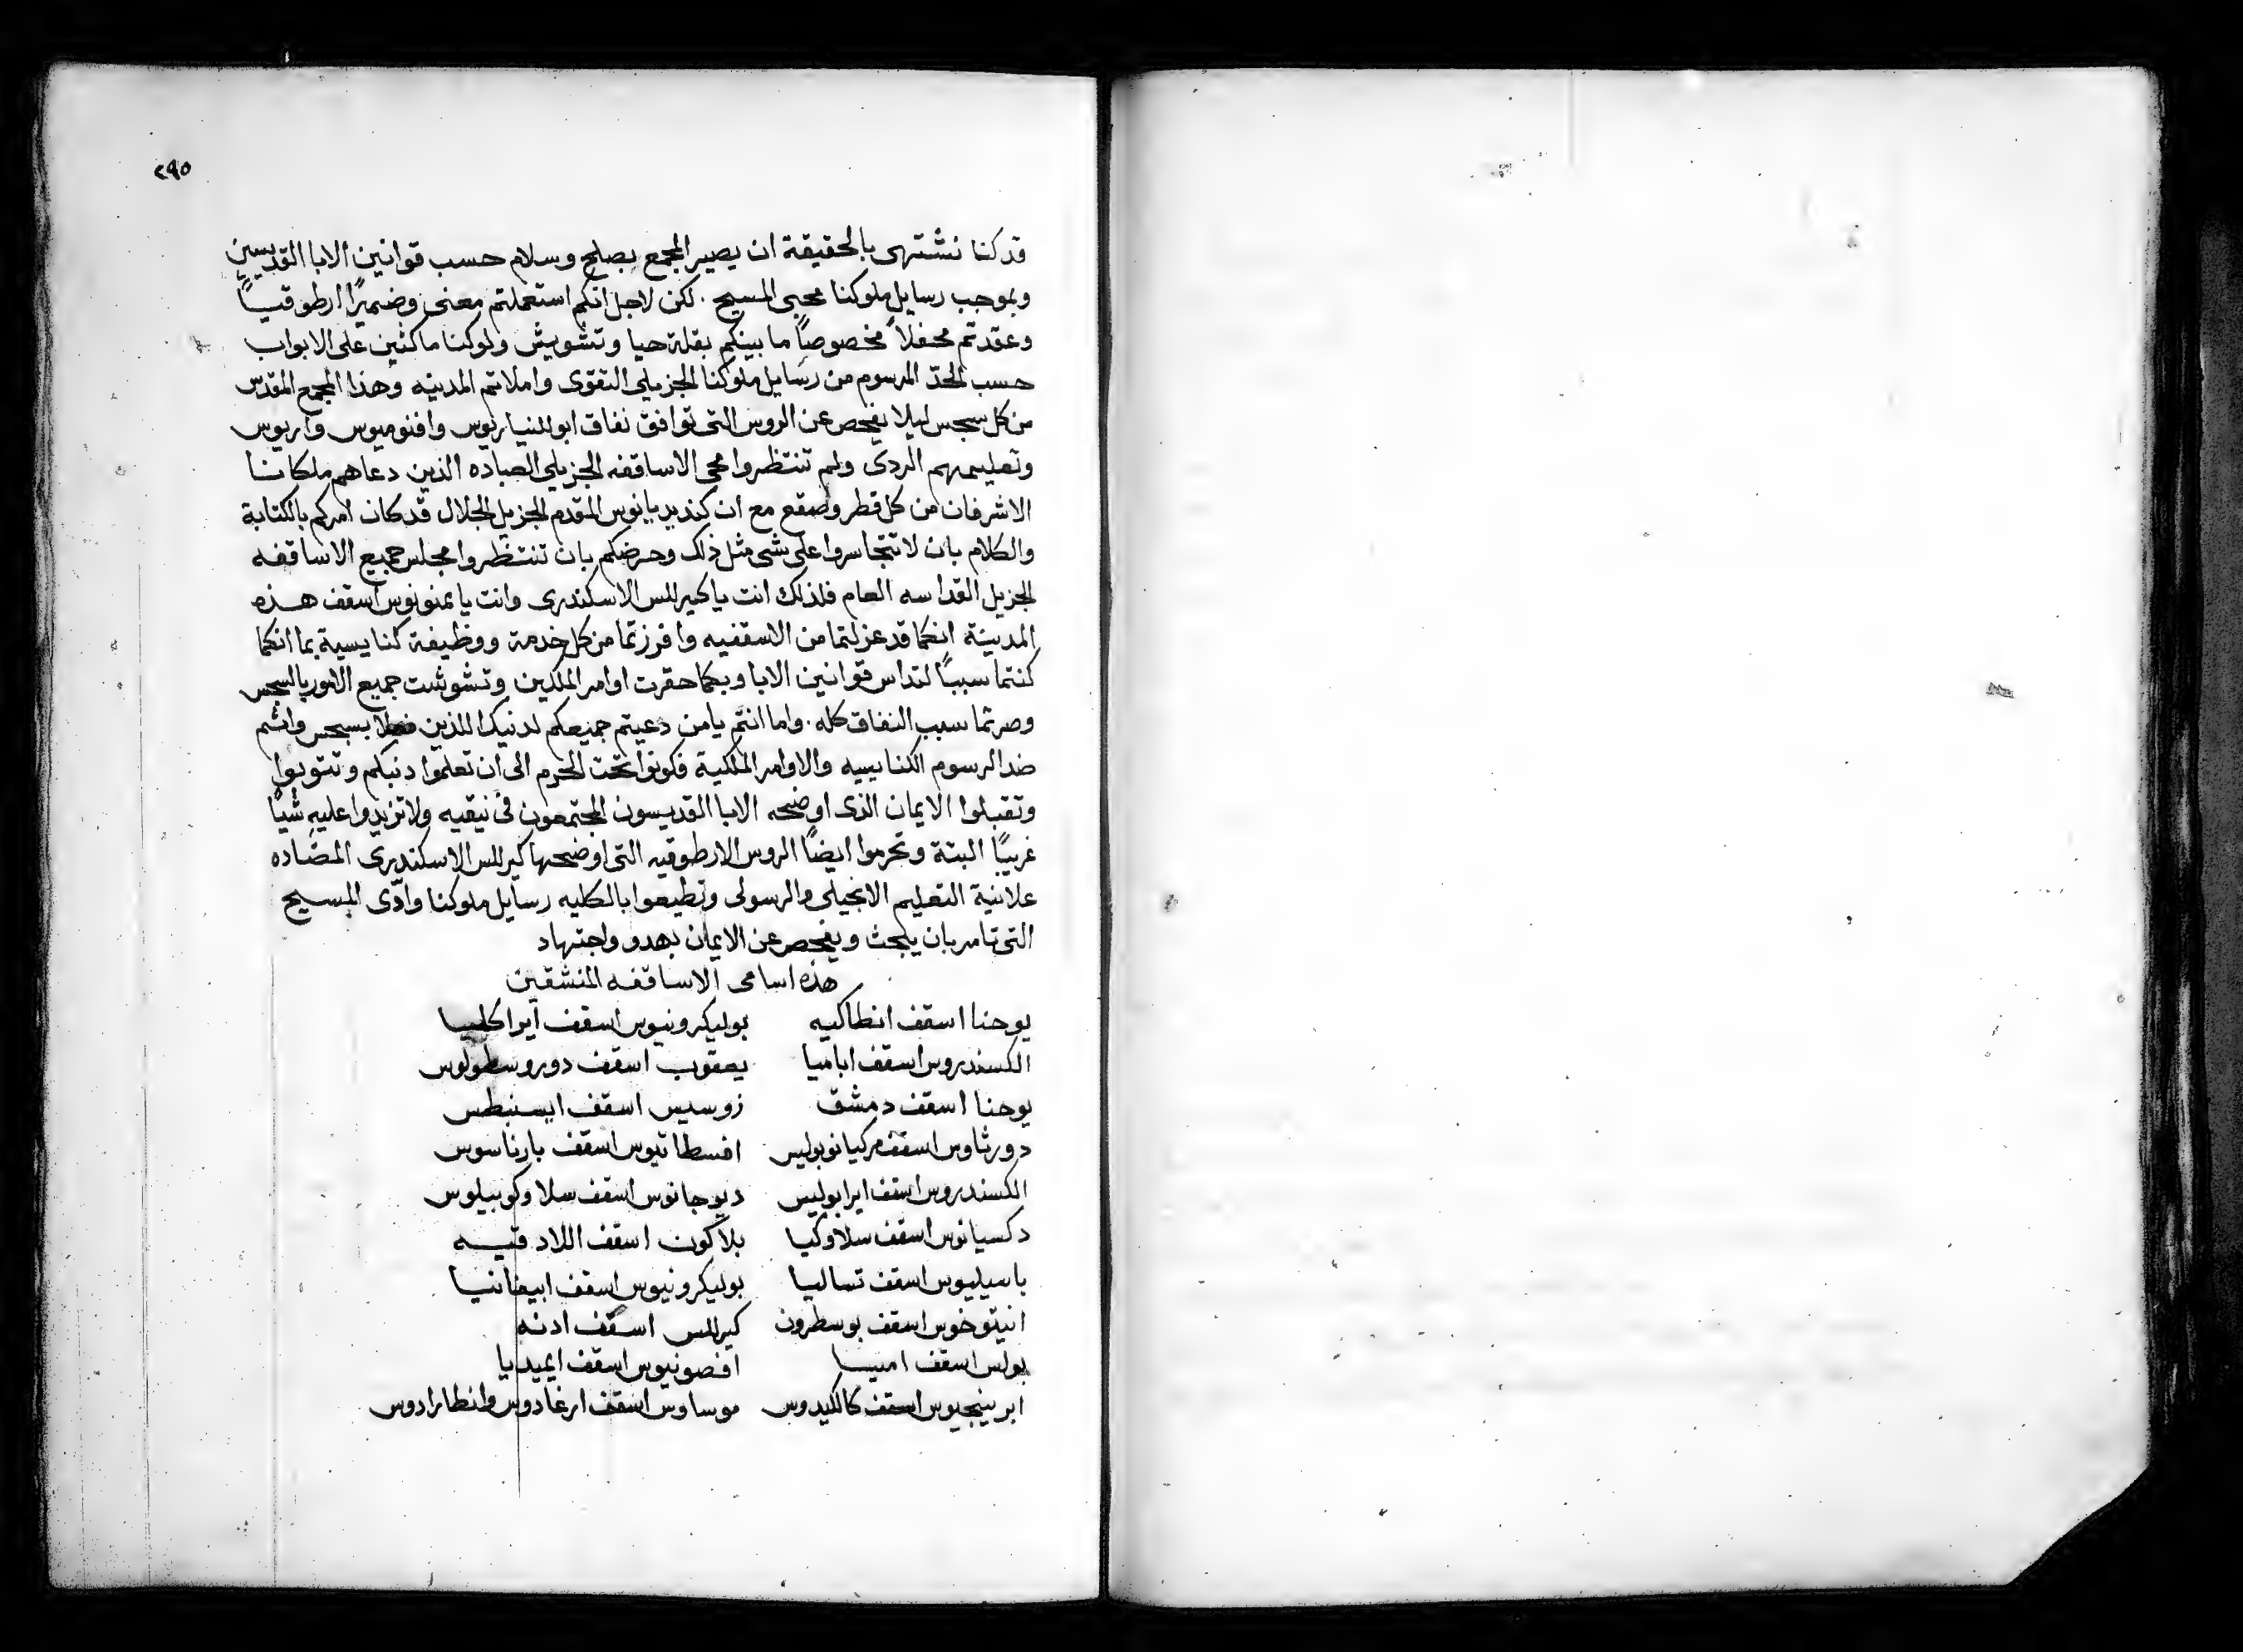 ٢٩٥
قد كنا نشتهى بالحقيقة ان يصير المجمع بصلح وسلام حسب قوانين الابا القديسين
وبموجب رسايل ملوكنا محبى المسيح . لكن لاجل انكم استعملتم معنى وضميرًا ارطوقيـاً
وعقدتم محفلاً مخصوصًا ما بينكم بقلة حيا وتشويش ولو كنا ماكثين على الابواب
حسب الحدّ المرسوم من رسايل ملوكنا الجزيلى التقوى واملاتم المدينه وهذا المجمع المقدس
من كل سجس ليلا يفحص عن الروس التى توافق نفاق ابوللنياريوس وافنوميوس واريوس
وتعليمهم الردى ولم تنتظروا مجى الاساقفه الجزيلى العباده الذين دعاهم ملكانا
الاشرفان من كل قطر وصقع مع ان كنديديانوس المقدم الجزيل الجلال قد كان امركم بالكتابة
والكلام بان لا تتجاسروا على شى مثل ذلك وحرضكم بان تنتظروا مجلس جميع الاساقفه
الجزيل القداسه العام فلذلك انت يا كيرللس الاسكندرى وانت يا ممنونوس اسقف هذه
المدينة انكما قد عزلتما من الاسقفيه وافرزتما من كل خدمة ووظيفة كنايسية بما انكما
كنتما سببًا لتداس قوانين الابا وبكما حقرت اوامر الملكين وتشوشت جميع الامور بالسجس
وصرتما سبب النفاق كله . واما انتم يا من دعيتم جميعكم لدنيك اللذين بسجس واثم
ضد الرسوم الكنايسيه والاوامر الملكية فكونوا تحت الحرم الى ان تعلموا دنبكم وتتوبوا
وتقبلوا الايمان الذى اوضحه الابا القديسون المجتمعون فى نيقيه ولا تزيدوا عليه شيًا
غريبًا البتة وتحرموا ايضًا الروس الارطوقيه التى اوضحها كيرللس الاسكندرى المضّاده
علانية التعليم الانجيلى والرسولى وتطيعوا بالكليه رسايل ملوكنا وادّى المسيح
التى تامر بان يبحث ويفحص عن الايمان بهدو واجتهاد
هذه اسامى الاساقفه المنشقين
يوحنا اسقف انطاكيه بوليكرونيوس اسقف ايراكليـا
الكسندروس اسقف اباميا يعقوب اسقف دوروسطولوس
يوحنا اسقف دمشق زوسيس اسقف ايسنبطس
دورثاوس اسقف مركيانوبوليس افسطاتيوس اسقف بارناسوس
الكسندروس اسقف ايرابوليس ديوجانوس اسقف سلاوكوبيلوس
دكسيانوس اسقف سلاوكيا بلاكون اسقف اللادقيـه
باسيليوس اسقف تساليا بوليكرونيوس اسقف ابيفانيـا
انيتوخوس اسقف بوسطرون كيرللس اسقف ادنه
بولس اسقف اميسـا افصونيوس اسقف ايميديا
ابرينجيوس اسقف كالكيدوس موساوس اسقف ارغادوس وانطارادوس